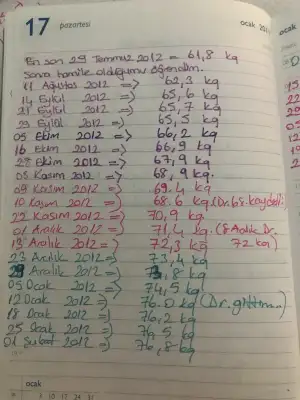 17 pazartesi
ocak 201
ocak
En son 29 Temmuz 2012 = 61,8 kg
Sonra hamile olduğumu öğrendim.
11 Ağustos 2012 => 62,3 kg
14 Eylül 2012 => 65,6 kg
21 Eylül 2012 => 65,7 kg
29 Eylül 2012 => 65,5 kg
05 Ekim 2012 => 66,2 kg
16 Ekim 2012 => 66,9 kg
29 Ekim 2012 => 67,9 kg
05 Kasım 2012 => 68,9 kg.
09 Kasım 2012 => 69.4 kg
10 Kasım 2012 => 68.6 kg (Dr. 68. kaydetti)
22 Kasım 2012 => 70,9 kg
01 Aralık 2012 => 71,4 kg. (8 Aralık Dr.
13 Aralık 2012 => 72,3 kg 72 kg)
23 Aralık 2012 => 73,4 kg
29 Aralık 2012 => 73,8 kg
05 Ocak 2012 => 74,5 kg
12 Ocak 2012 => 76.0 kg (Dr. gittim)
18 Ocak 2012 => 76,2 kg
25 Ocak 2012 => 76,5 kg
01 Şubat 2012 => 76,8 kg
ocak
3 10 17 24 31